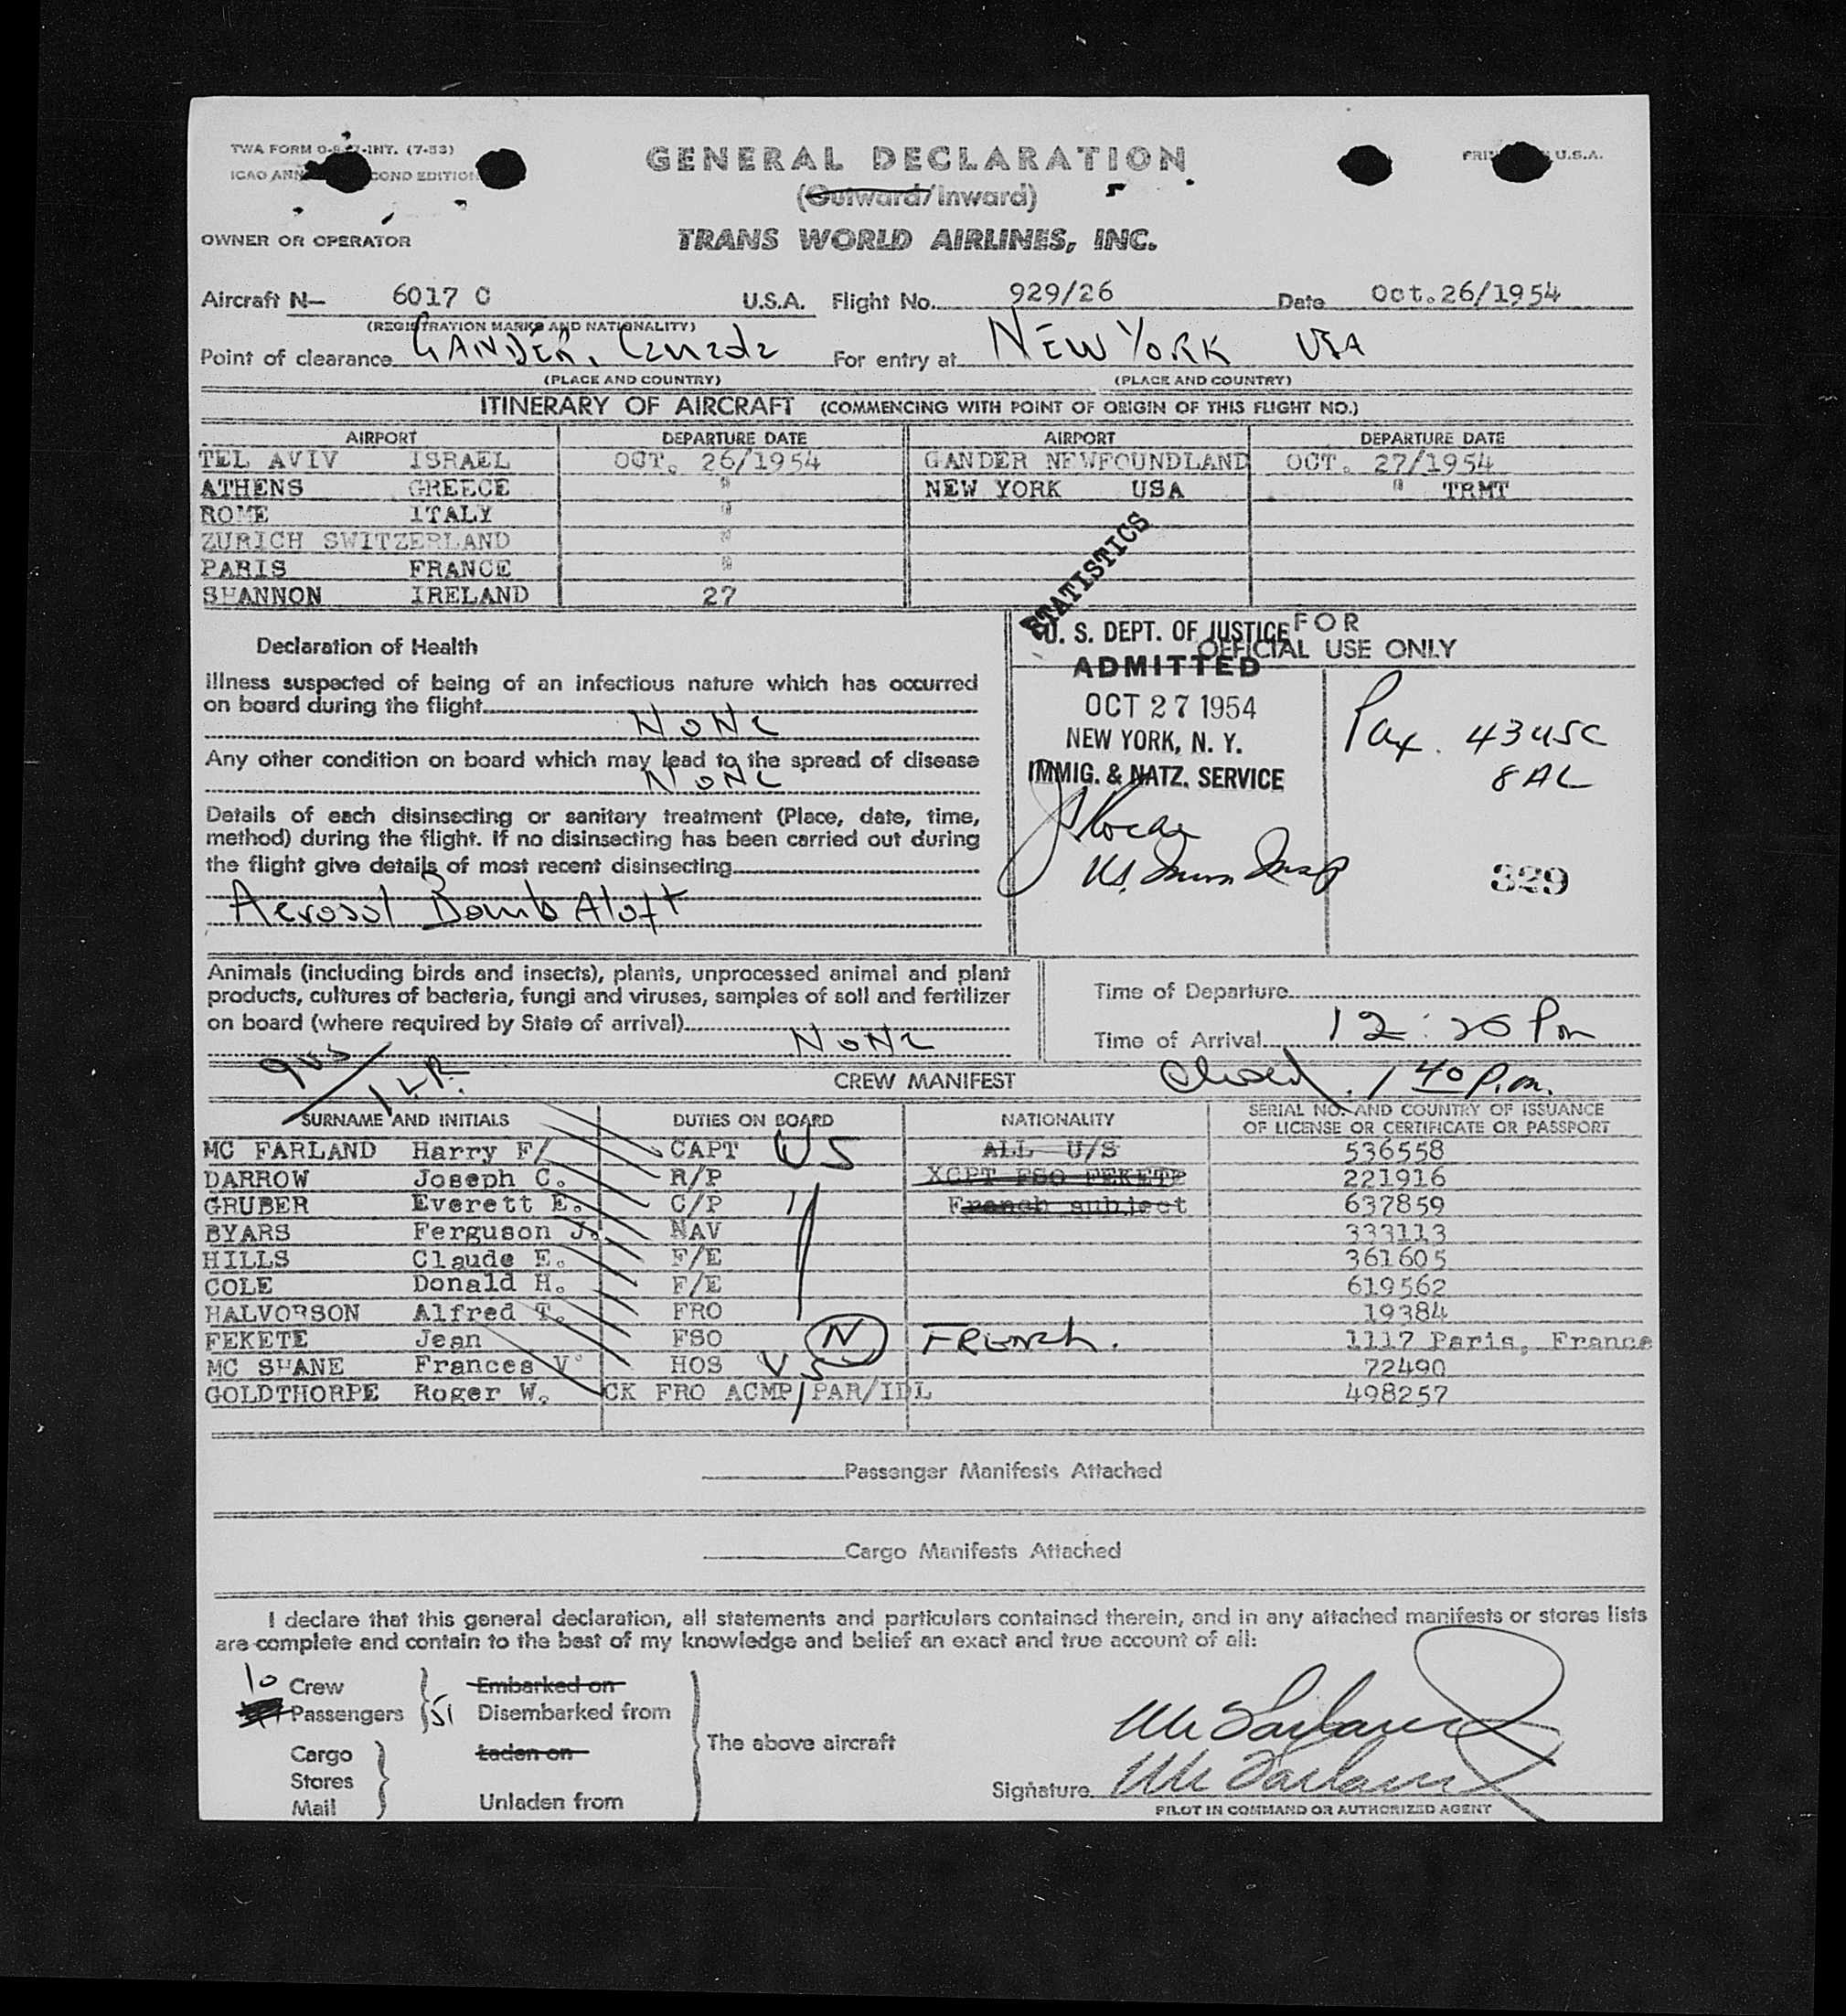 TWA FORM O- -INT. (7-53)
ICAO ANN COND EDITION
PRI U.S.A.
GENERAL DECLARATION
(Outward/Inward)
OWNER OR OPERATOR TRANS WORLD AIRLINES, INC.
Aircraft N— 6017 C U.S.A. Flight No. 929/26 Date Oct.26/1954
(REGISTRATION MARKS AND NATIONALITY)
Point of clearance GANDER, Canada For entry at NEW YORK USA
(PLACE AND COUNTRY) (PLACE AND COUNTRY)
ITINERARY OF AIRCRAFT (COMMENCING WITH POINT OF ORIGIN OF THIS FLIGHT NO.)
AIRPORT DEPARTURE DATE AIRPORT DEPARTURE DATE
TEL AVIV ISRAEL OCT. 26/1954 GANDER NEWFOUNDLAND OCT. 27/1954
ATHENS GREECE " NEW YORK USA " TRMT
ROME ITALY "
ZURICH SWITZERLAND "
PARIS FRANCE "
SHANNON IRELAND 27
STATISTICS
FOR
OFFICIAL USE ONLY
U. S. DEPT. OF JUSTICE
ADMITTED
OCT 27 1954
NEW YORK, N. Y.
IMMIG. & NATZ. SERVICE
US. Imm Insp
Pax. 43 USC
8 AL
329
Declaration of Health
Illness suspected of being of an infectious nature which has occurred
on board during the flight
NONE
Any other condition on board which may lead to the spread of disease
NONE
Details of each disinsecting or sanitary treatment (Place, date, time,
method) during the flight. If no disinsecting has been carried out during
the flight give details of most recent disinsecting
Aerosol Bomb Aloft
Animals (including birds and insects), plants, unprocessed animal and plant
products, cultures of bacteria, fungi and viruses, samples of soil and fertilizer
on board (where required by State of arrival)
NONE
Time of Departure
Time of Arrival 12:20 Pm
9 US
CREW MANIFEST
Closed. 1 40 p.m.
SURNAME AND INITIALS DUTIES ON BOARD NATIONALITY SERIAL NO. AND COUNTRY OF ISSUANCE
OF LICENSE OR CERTIFICATE OR PASSPORT
MC FARLAND Harry F/ CAPT US ALL U/S 536558
DARROW Joseph C. R/P XCPT FSO FEKETE 221916
GRUBER Everett E. C/P French subject 637859
BYARS Ferguson J. NAV 333113
HILLS Claude E. F/E 361605
COLE Donald H. F/E 619562
HALVORSON Alfred T. FRO 19384
FEKETE Jean FSO N FRENCH. 1117 Paris, France
MC SHANE Frances V HOS US 72490
GOLDTHORPE Roger W. CK FRO ACMP PAR/IDL 498257
Passenger Manifests Attached
Cargo Manifests Attached
I declare that this general declaration, all statements and particulars contained therein, and in any attached manifests or stores lists
are complete and contain to the best of my knowledge and belief an exact and true account of all:
10 Crew Embarked on
Passengers 51 Disembarked from
The above aircraft
Cargo Laden on
Stores
Mail Unladen from
Mc Farland
Signature Mc Farland
PILOT IN COMMAND OR AUTHORIZED AGENT